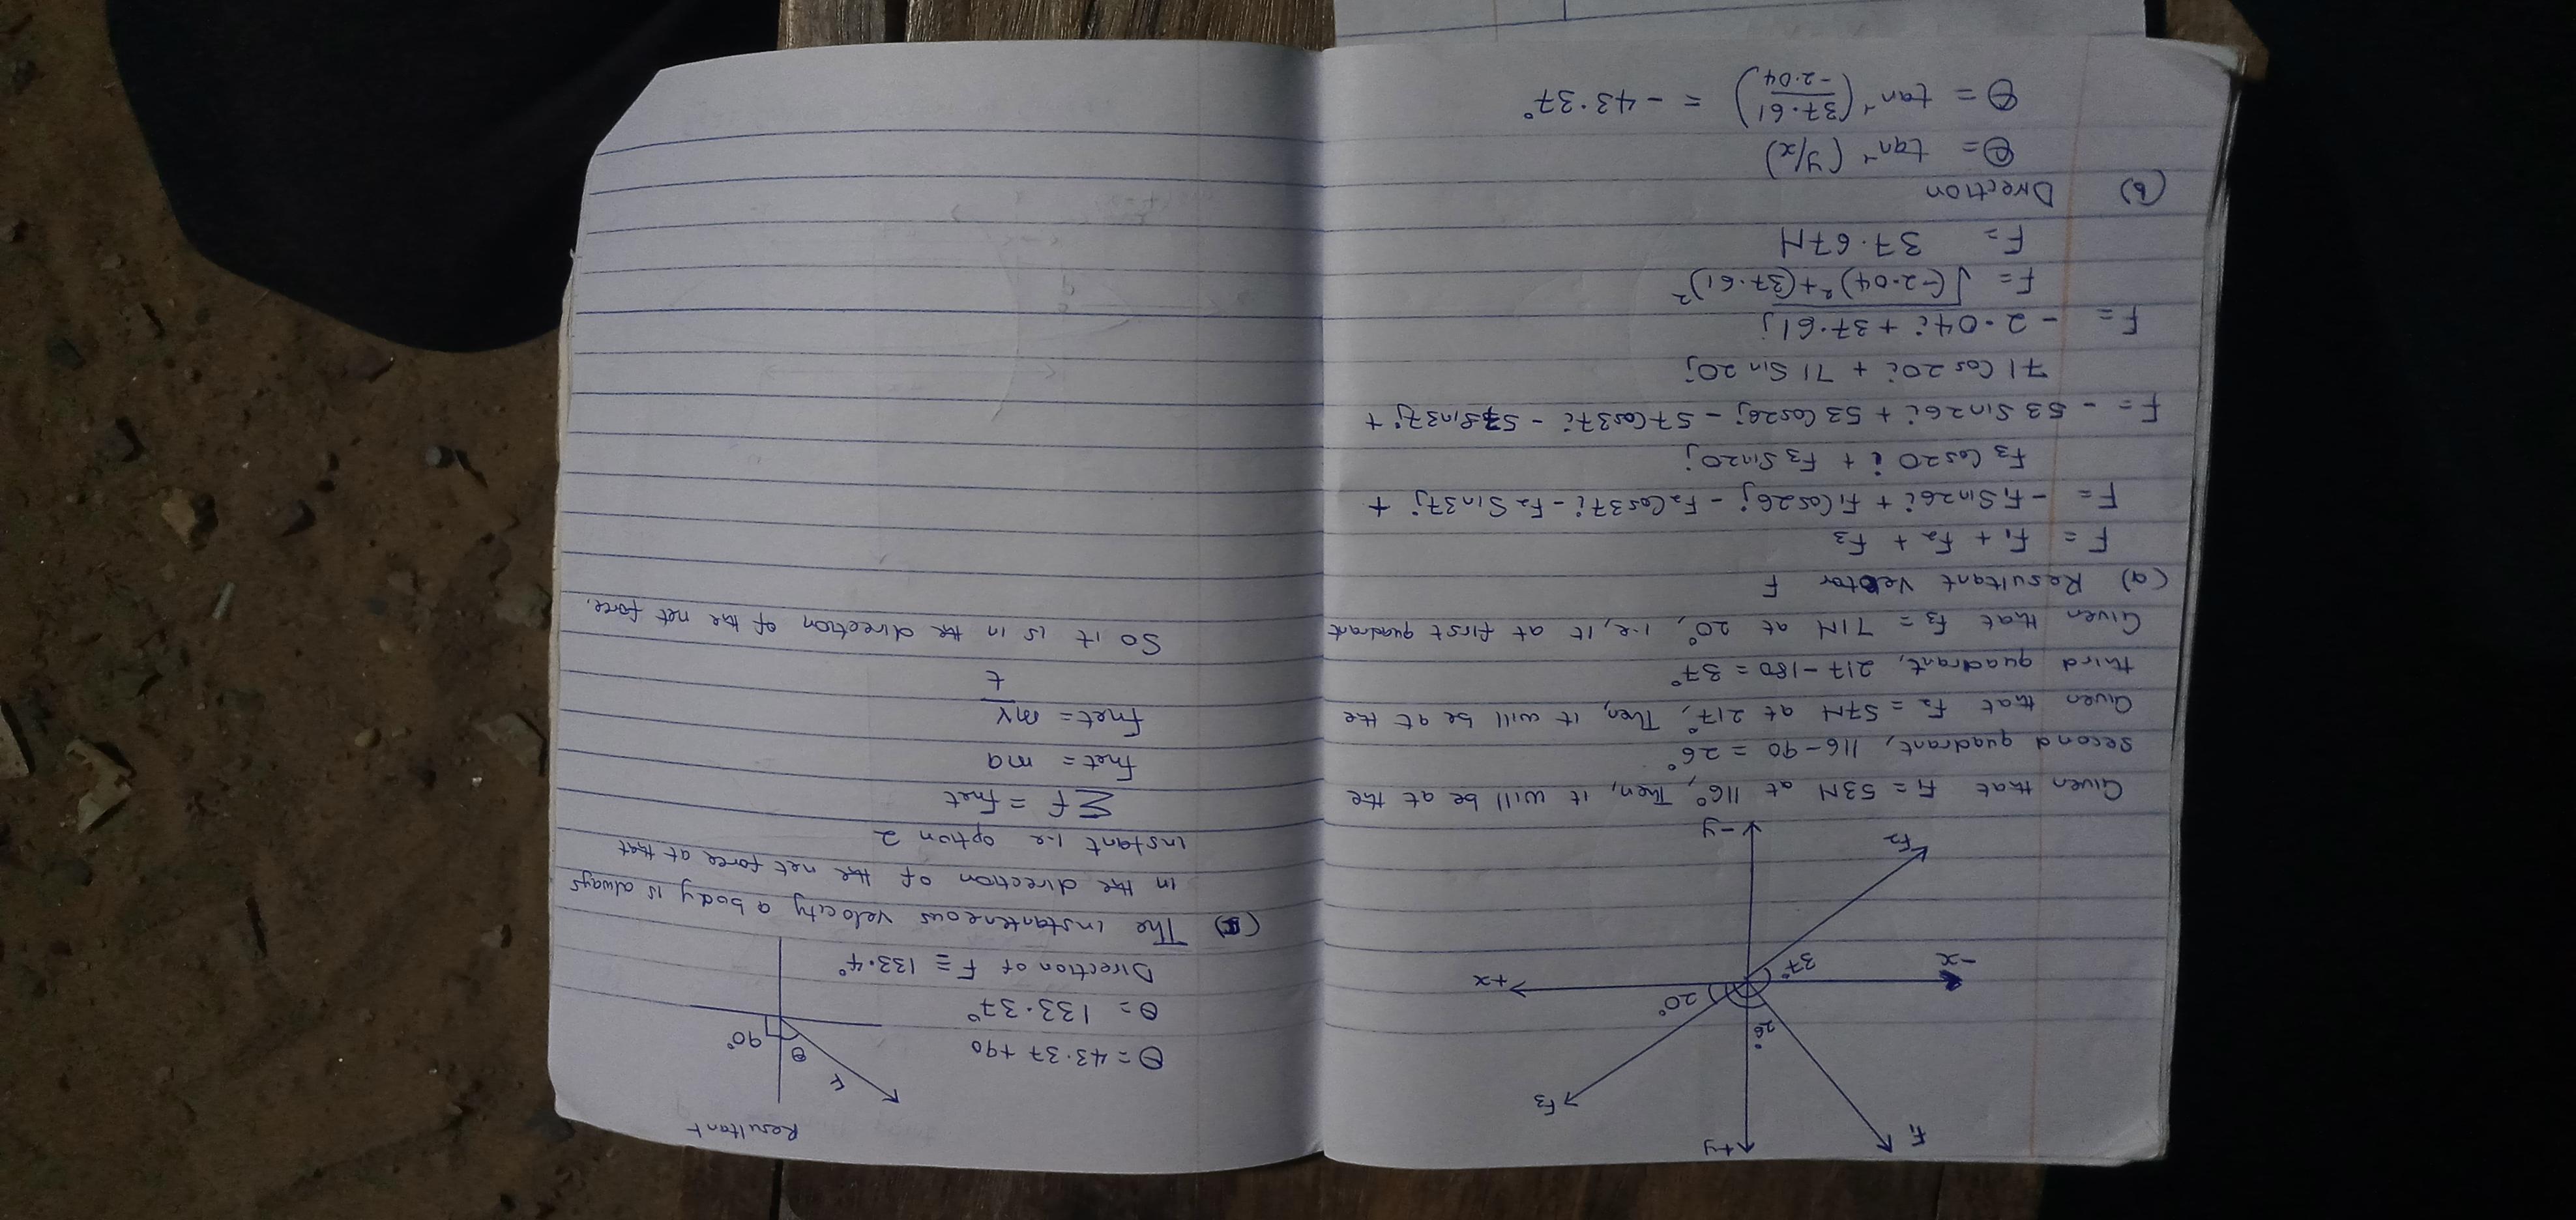 F₁
+y
F₃
26°
20°
-x
37°
+x
F₂
-y
Given that F₁ = 53N at 116°, Then, it will be at the
second quadrant, 116-90 = 26°
Given that F₂ = 57N at 217°, Then, it will be at the
third quadrant, 217-180 = 37°
Given that F₃ = 71N at 20°, i.e, it at first quadrant
(a) Resultant Vector F
F = F₁ + F₂ + F₃
F = -F₁Sin26i + F₁Cos26j - F₂Cos37i - F₂Sin37j +
F₃Cos20i + F₃Sin20j
F = -53Sin26i + 53Cos26j - 57Cos37i - 57Sin37j +
71Cos20i + 71Sin20j
F = -2.04i + 37.61j
F = √(-2.04)² + (37.61)²
F = 37.67N
(b) Direction
θ = tan⁻¹(y/x)
θ = tan⁻¹(37.61/-2.04) = -43.37°
Resultant
F
θ
90°
θ = 43.37+90
θ = 133.37°
Direction of F ≅ 133.4°
The instanteneous velocity a body is always
in the direction of the net force at that
instant i.e option 2
∑F = Fnet
Fnet = ma
Fnet = mv/t
So it is in the direction of the net force.